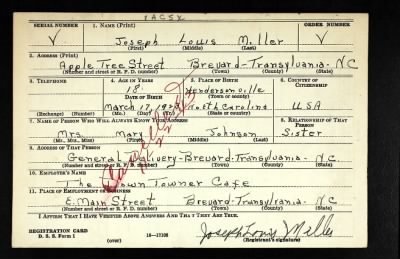 SERIAL NUMBER 1. NAME (Print) ORDER NUMBER
V Joseph Louis Miller V
(First) (Middle) (Last)
2. ADDRESS (Print)
Apple Tree Street Brevard-Transylvania-N.C
(Number and street or R. F. D. number) (Town) (County) (State)
3. TELEPHONE 4. AGE IN YEARS 5. PLACE OF BIRTH 6. COUNTRY OF CITIZENSHIP
18 Hendersonville
DATE OF BIRTH (Town or county)
March 17, North Carolina USA
(Exchange) (No.) (Mo.) (Day) (Yr.) (State or country)
7. NAME OF PERSON WHO WILL ALWAYS KNOW YOUR ADDRESS 8. RELATIONSHIP OF THAT PERSON
Mrs. Mary Johnson Sister
(Mr., Mrs., Miss) (First) (Middle) (Last)
9. ADDRESS OF THAT PERSON
General Delivery-Brevard-Transylvania-N.C.
(Number and street or R. F. D. number) (Town) (County) (State)
10. EMPLOYER'S NAME
The Town Towner Cafe
11. PLACE OF EMPLOYMENT OR BUSINESS
E. Main Street Brevard-Transylvania-N.C.
(Number and street or R. F. D. number) (Town) (County) (State)
I AFFIRM THAT I HAVE VERIFIED ABOVE ANSWERS AND THAT THEY ARE TRUE.
REGISTRATION CARD
D. S. S. Form 1 16—17105 Joseph Louis Miller
(over) (Registrant's signature)
Cancelled